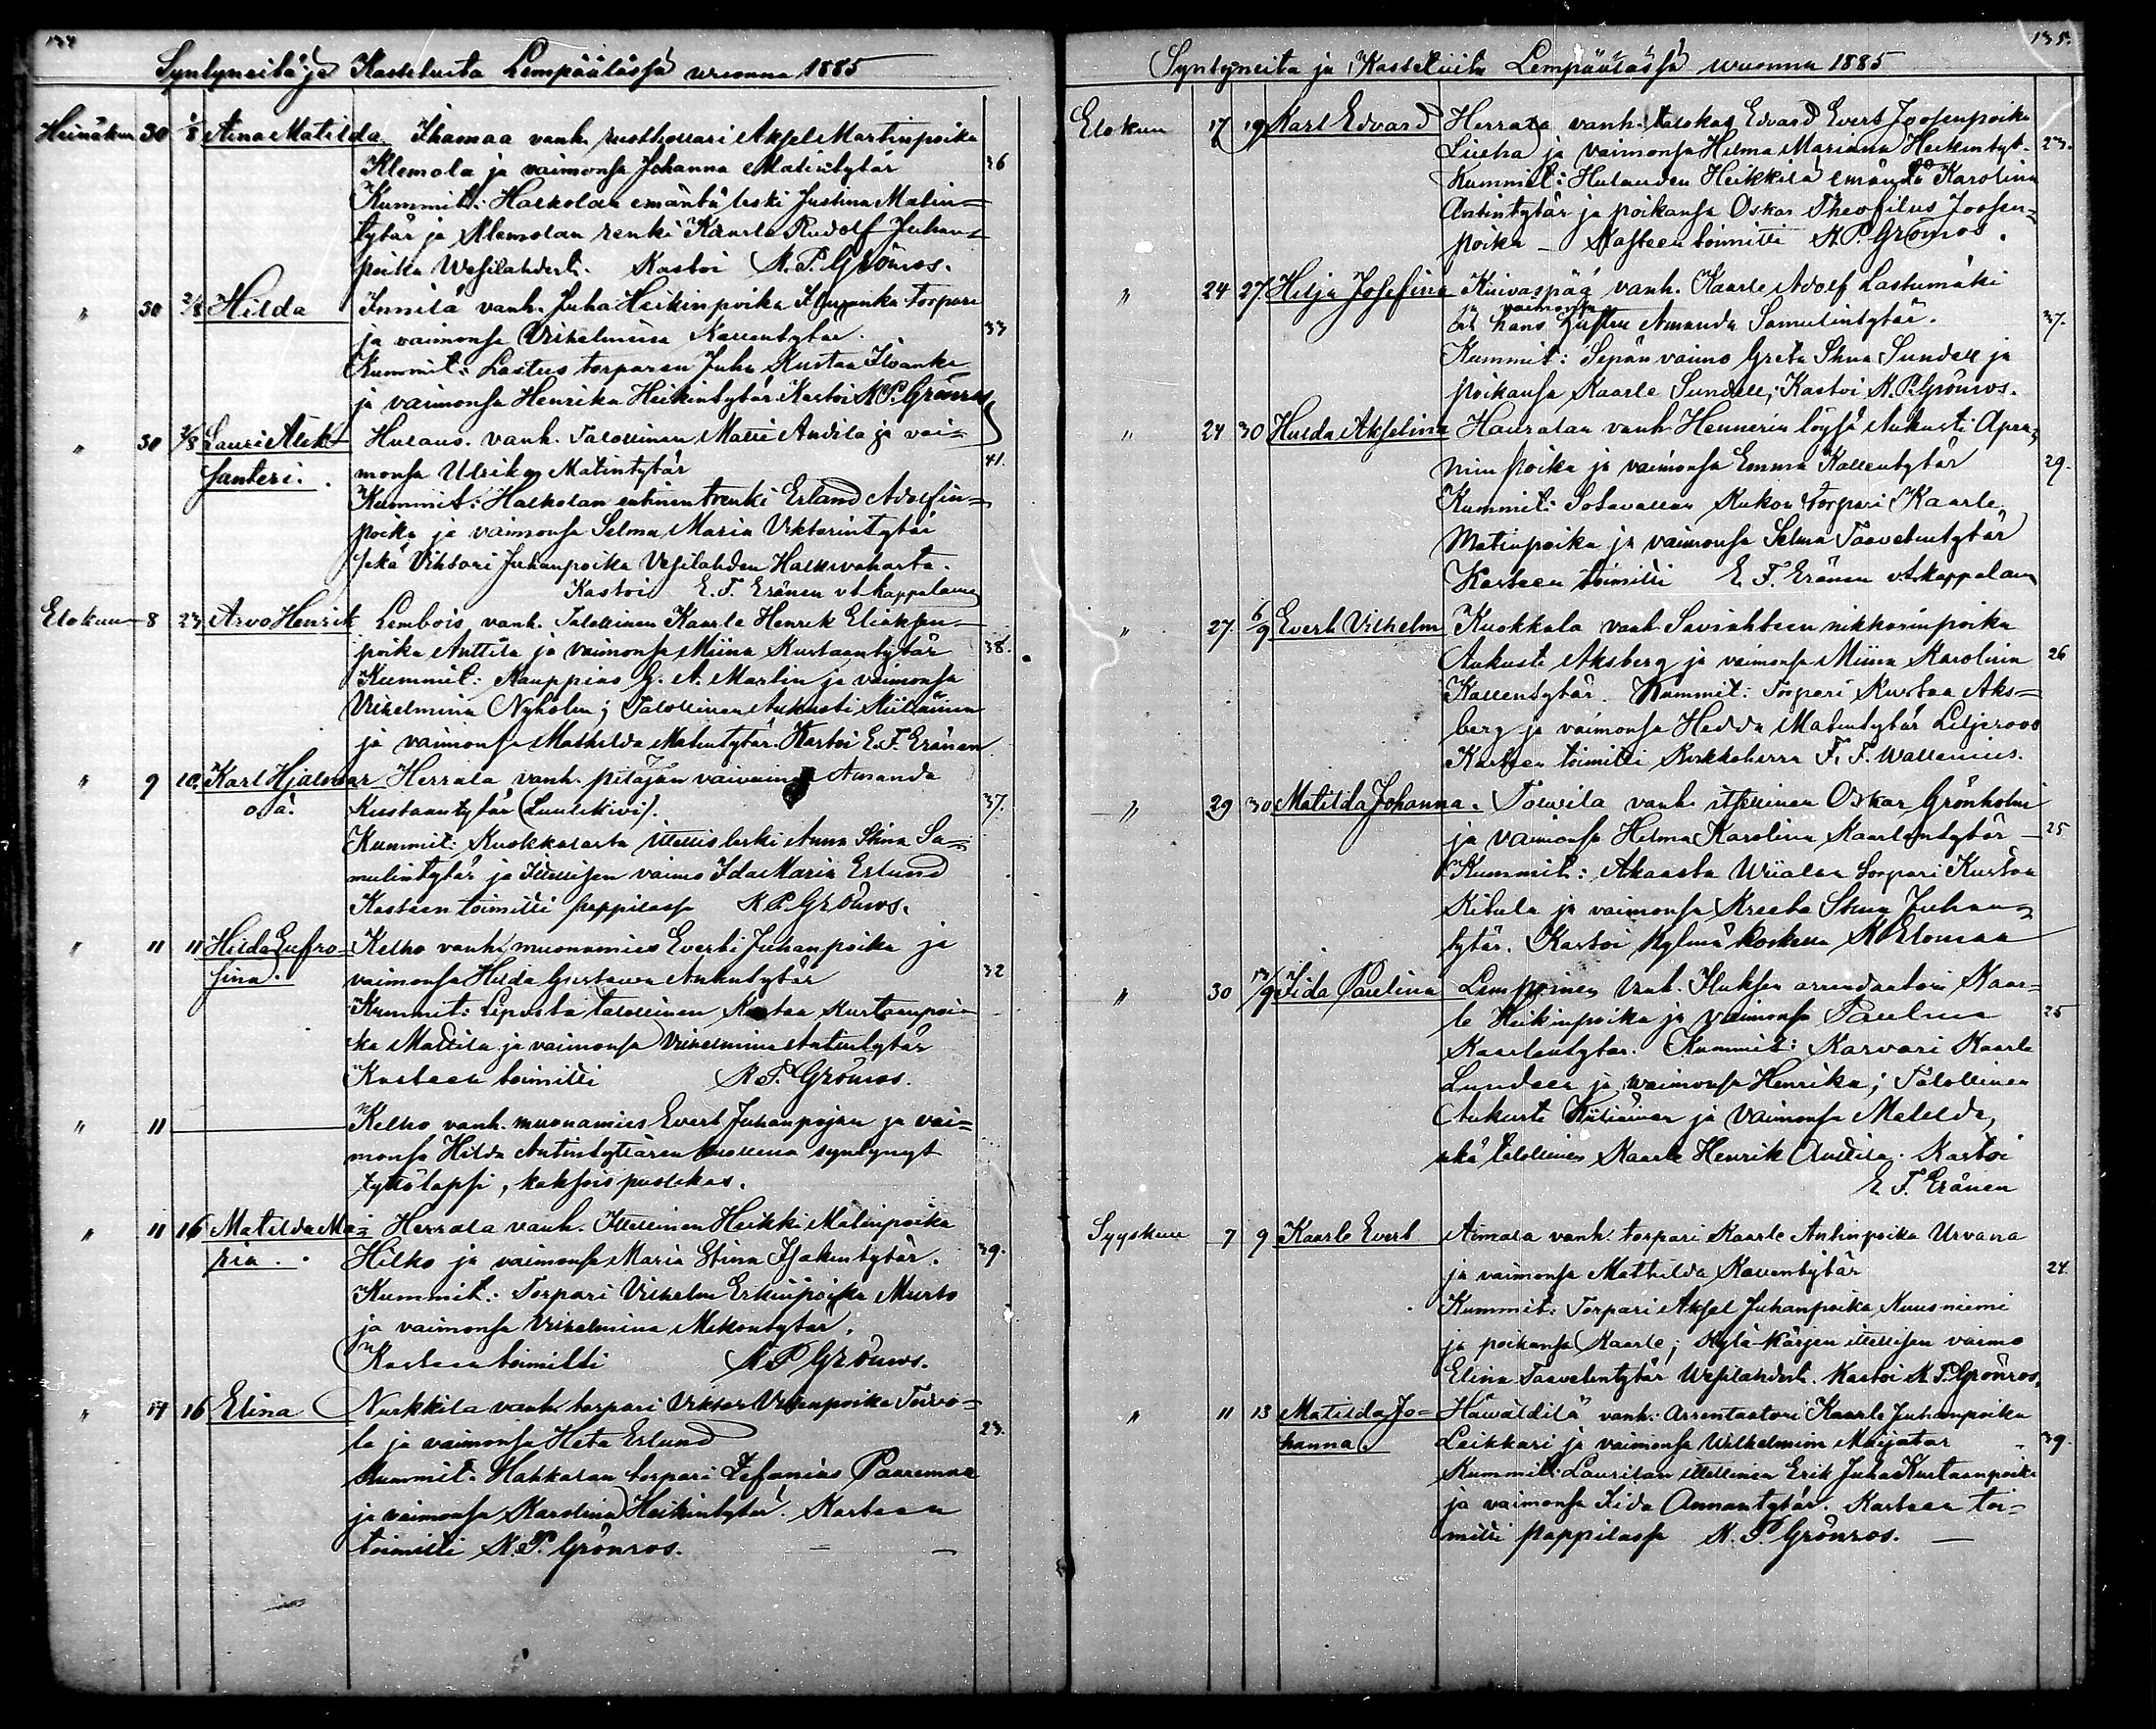 134
Syntyneitä ja Kastetuita Lempäälässä wuonna 1885
Heinäkuu 30 1/8 Aina Matilda Ihamaa vanh. rusthollari Aksel Martinpoika
Klemola ja vaimonsa Johanna Matintytär 36
Kummit: Halkolan emäntä leski Justina Matin-
tytär ja Klemolan renki Kaarle Rudolf Juhan-
poika Wesilahdest. Kastoi K. P. Grönros.
" 30 2/8 Hilda Innilä vanh. Juha Heikinpoika torpari
ja vaimonsa Vilhelmiina Kallentytär. 33
Kummit: Lastus torparin Juha Kustaa Ilvanka
ja vaimonsa Henrika Heikintytär Kastoi K. P. Grönros
" 30 2/8 Lauri Alek- Hulaus. vanh. Talollinen Matti Andila ja vai-
santeri. monsa Ulrika Matintytär 41.
Kummit: Halkolan entinen renki Erland Adolfin-
poika ja vaimonsa Selma Maria Viktorintytär
sekä Vihtori Juhanpoika Vesilahden
Kastoi E. F. Eränen vt. kappalainen
Elokuu 8 23 Arvo Henrik Lembois vanh. Talollinen Kaarle Henrik Eliaksen-
poika Anttila ja vaimonsa Miina Kustaantytär 38.
Kummit: Kauppias G. A. Martin ja vaimonsa
Vilhelmina Nyholm; Talollinen Aukusti Kiiliäinen
ja vaimonsa Mathilda Matintytär. Kastoi E. F. Eränen
" 9 10. Karl Hjalmar Herrala vanh. pitäjän vaivainen Amanda
o.ä. Kustaantytär (Luulikivi). 37.
Kummit: Kuokkalasta itellis leski Anna Stina Sa-
mulintytär ja Itellisen vaimo Ida Maria Erlund
Kasteen toimitti pappilassa K. P. Grönros.
" 11 11 Hilda Eufro- Kelho vanh. muonamies Everti Juhanpoika ja
sina. vaimonsa Hilda Gustava Antintytär 32
Kummit: talollinen Kustaa Kustaanpoi-
ka Mattila ja vaimonsa Vilhelmina Antintytär
Kasteen toimitti K. P. Grönros.
" 11 Kelho vanh. muonamies Evert Juhanpojan ja vai-
monsa Hilda Antintyttären kuollena syntynyt
tyttölapsi, kaksoispuolikas.
" 11 16 Matilda Ma- Herrala vanh. Itellinen Heikki Matinpoika
ria. Hilko ja vaimonsa Maria Stina Isakintytär. 39.
Kummit: Torpari Vilhelm Erkinpoika Murto
ja vaimonsa Vilhelmina Mikontytär.
Kasteen toimitti K. P. Grönros.
" 14 16 Elina Nurkkila vanh. torpari Viktor Villenpoika Toivo-
la ja vaimonsa Heta Erlund 23.
Kummit: Hakkalan torpari Zefanias
ja vaimonsa Karolina Heikintytär. Kasteen
toimitti K. P. Grönros.
135.
Syntyneitä ja Kastetuita Lempäälässä wuonna 1885
Elokuu 17 19 Karl Edvard Herrala vanh. talokas Edvard Evert Joosenpoika
ja vaimonsa Hilma Mariana Heikintyt. 23.
Kummit: Hulauden Heikkilä emäntä Karolina
Antintytär ja poikansa Oskar Theofilus Joosen-
poika - Kasteen toimitti K. P. Grönros.
" 24 27. Hilja Josefina Kuivaspää vanh. Kaarle Adolf Lastumäki
ja vaimonsa
hans hustru Amanda Samulintytär. 37.
Kummit: Sepän vaimo Greta Stina Sundell ja
poikansa Kaarle Sundell; Kastoi K. P. Grönros.
" 24 30 Hulda Akselina Hauralan vanh. Hennerin löysä Aukusti
poika ja vaimonsa Emma Kallentytär 29.
Kummit: Sotavallan Kukon torpari Kaarle
Matinpoika ja vaimonsa Selma Taavetintytär
Kasteen toimitti E. F. Eränen vt. kappalain
" 27. 6/9 Evert Vilhelm Kuokkala vanh. nikkarinpoika
Aukusti Aksberg ja vaimonsa Miina Karolina 26
Kallentytär. Kummit: Torpari Kustaa Aks-
berg ja vaimonsa Hedda Matintytär Liljeroos
Kasteen toimitti Kirkkoherra F. F. Wallenius.
" 29 30 Matilda Johanna. vanh. itsellinen Oskar Grönholm
ja vaimonsa Hilma Karolina Kaarlentytär - 25
Kummit: Akaasta Wiialan torpari Kustaa
Kitula ja vaimonsa Kreeta Stina Juhan-
tytär. Kastoi Kylmäkoskella K. Elomaa
" 30 13/9 Iida Paulina Lempoinen vanh. arrendaatori Kaar-
le Heikinpoika ja vaimonsa Paulina 25
Kaarlentytär. Kummit: Karvari Kaarle
Lundeen ja waimonsa Henrika; Talollinen
Aukusti Kiiliäinen ja Vaimonsa Matilda,
sekä talollinen Kaarle Henrik Anttila. Kastoi
E. F. Eränen
Syyskuu 7 9 Kaarle Evert Aimala vanh. torpari Kaarle Antinpoika Urvana
ja vaimonsa Mathilda Kallentytär 24.
Kummit: Torpari Aksel Juhanpoika Kuusniemi
ja poikansa Kaarle; Kylä-Kärjen itellisen vaimo
Elina Taavetintytär Wesilahdest. Kastoi K. P. Grönros.
" 11 13 Matilda Jo- vanh. Arrentaatori Kaarle Juhanpoika
hanna. Leikkari ja vaimonsa Wilhelmiina 39.
Kummit: Laurilan itellinen Erik Juha Kustaanpoika
ja vaimonsa Iida Annantytär. Kasteen toi-
mitti pappilassa K. P. Grönros.